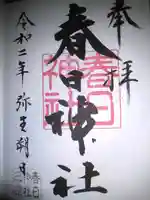 奉拝
春日神社
春日神社
令和二年 弥生朔日